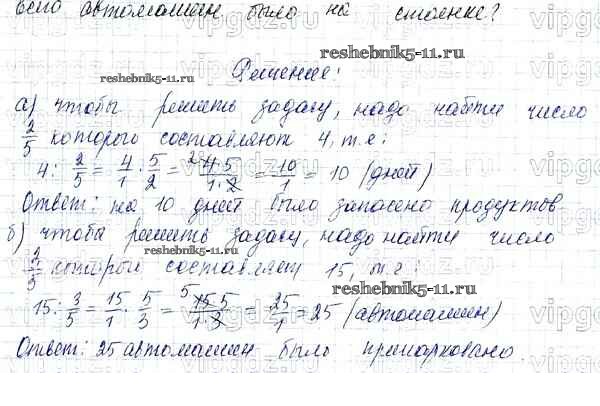 всего автомашин было на стоянке?
reshebnik5-11.ru
reshebnik5-11.ru
Решение:
а) чтобы решить задачу, надо найти число
2/5 которого составляют 4, т.е:
4 : 2/5 = 4/1 · 5/2 = 4·5/1·2 = 10/1 = 10 (дней)
Ответ: на 10 дней было запасено продуктов
б) чтобы решить задачу, надо найти число
3/5 которой составляет 15, т.е:
reshebnik5-11.ru
reshebnik5-11.ru
15 : 3/5 = 15/1 · 5/3 = 15·5/1·3 = 25/1 = 25 (автомашин)
Ответ: 25 автомашин было припарковано.
vipgdz.ru